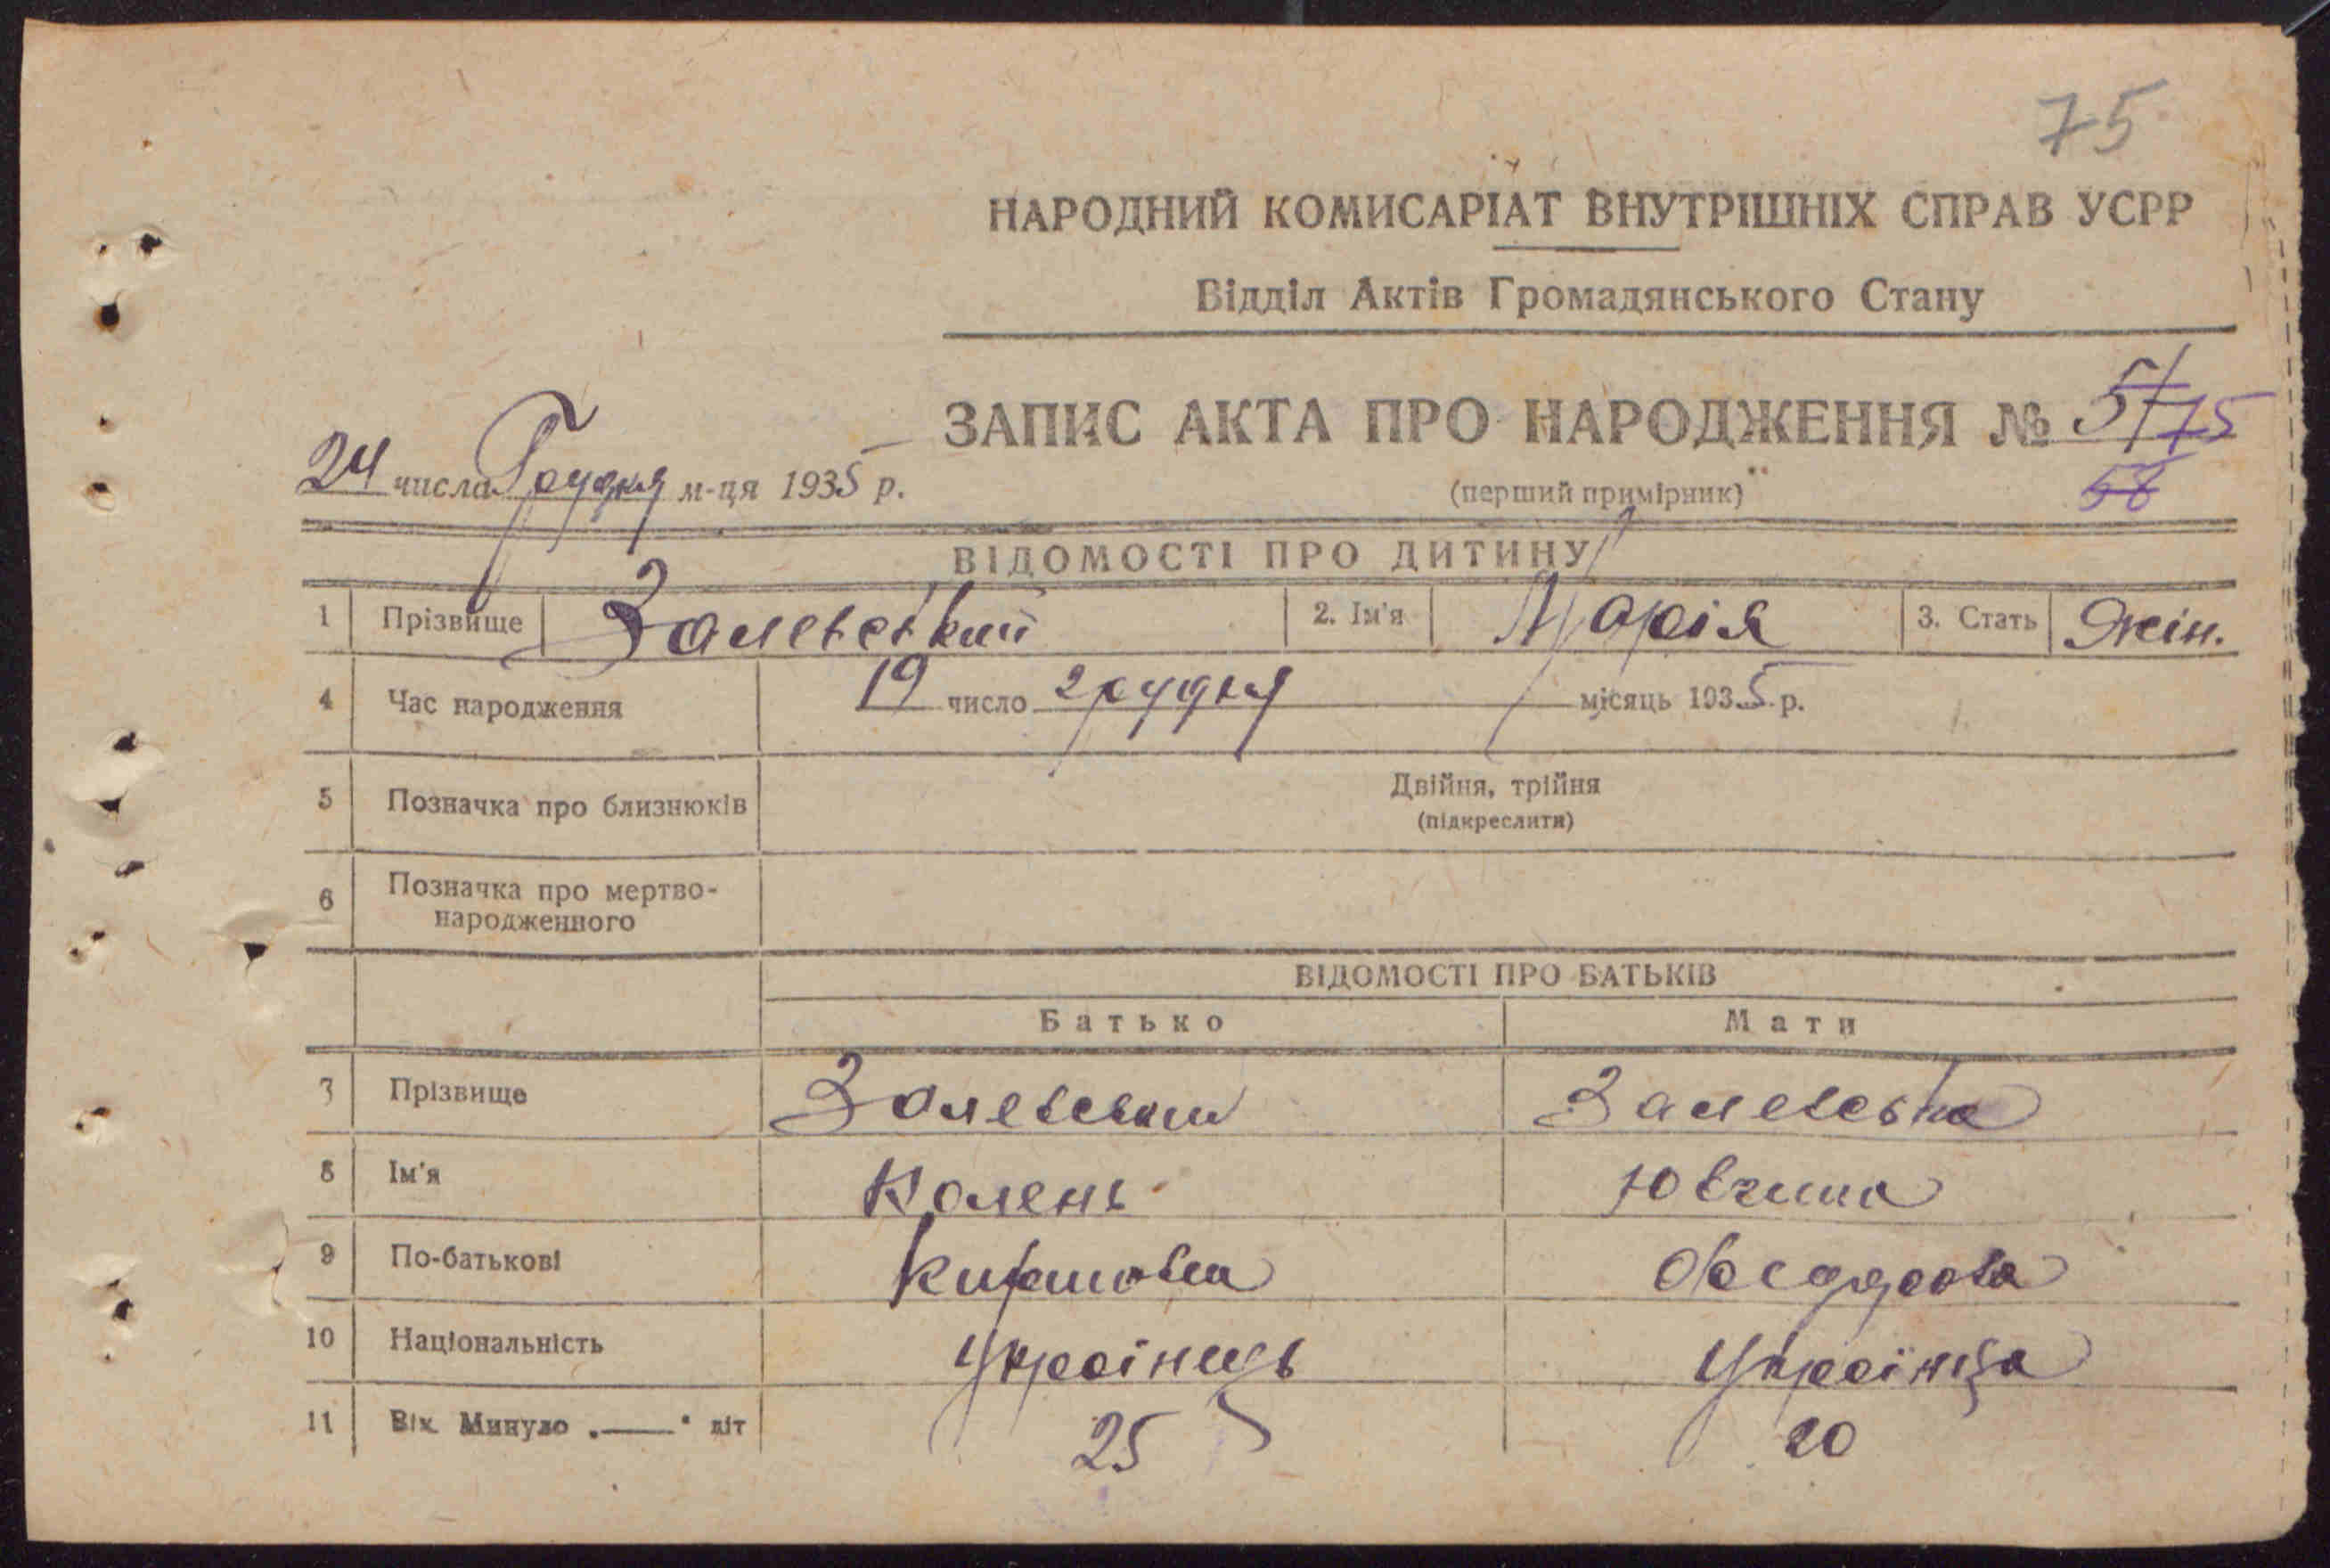 75
НАРОДНИЙ КОМИСАРІАТ ВНУТРІШНІХ СПРАВ УСРР
Відділ Актів Громадянського Стану
ЗАПИС АКТА ПРО НАРОДЖЕННЯ № 57 75
24 числа Грудня м-ця 1935 р.
(перший примірник) 58
ВІДОМОСТІ ПРО ДИТИНУ
1 Прізвище Залевський 2. Ім'я Марія 3. Стать Жін.
4 Час народження 19 число грудня місяць 1935 р.
5 Позначка про близнюків Двійня, трійня
(підкреслити)
6 Позначка про мертво-
народженного
ВІДОМОСТІ ПРО БАТЬКІВ
Батько Мати
7 Прізвище Залевський Залевська
8 Ім'я
9 По-батькові
10 Національність Українець Українца
11 Вік. Минуло „——“ літ 25 20